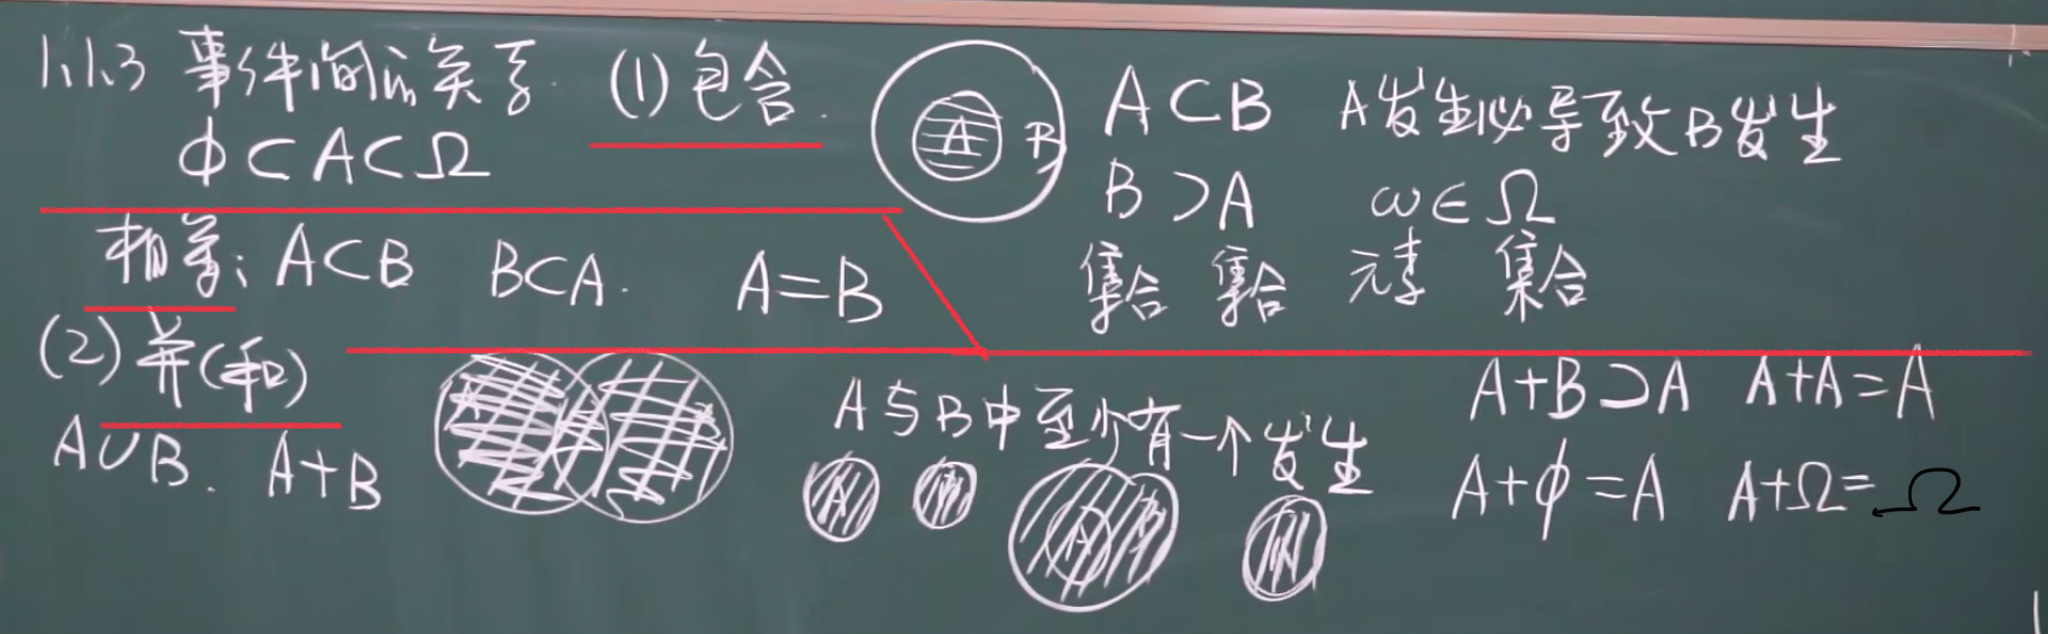 1.1.3 事件间的关系. (1) 包含.
ϕ⊂A⊂Ω
A B
A⊂B A发生必导致B发生
B⊃A ω∈Ω
集合 集合 元素 集合
相等: A⊂B B⊂A. A=B
(2) 并(和)
A∪B. A+B
A B
A与B中至少有一个发生
A+B⊃A A+A=A
A+ϕ=A A+Ω=Ω